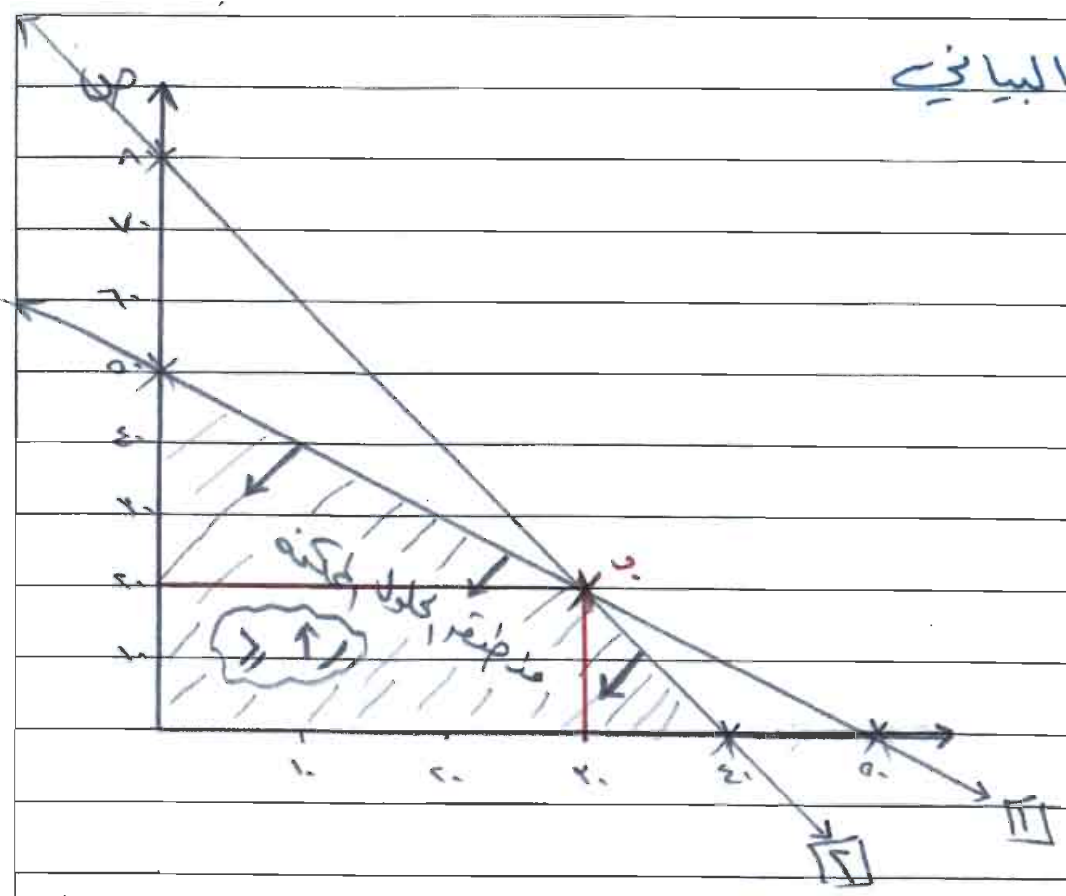 البياني
ص
٨٠
٧٠
٦٠
٥٠
٤٠
٣٠
٢٠
١٠
ب
منطقة الحلول الممكنة
١٠ ٢٠ ٣٠ ٤٠ ٥٠
١
٢